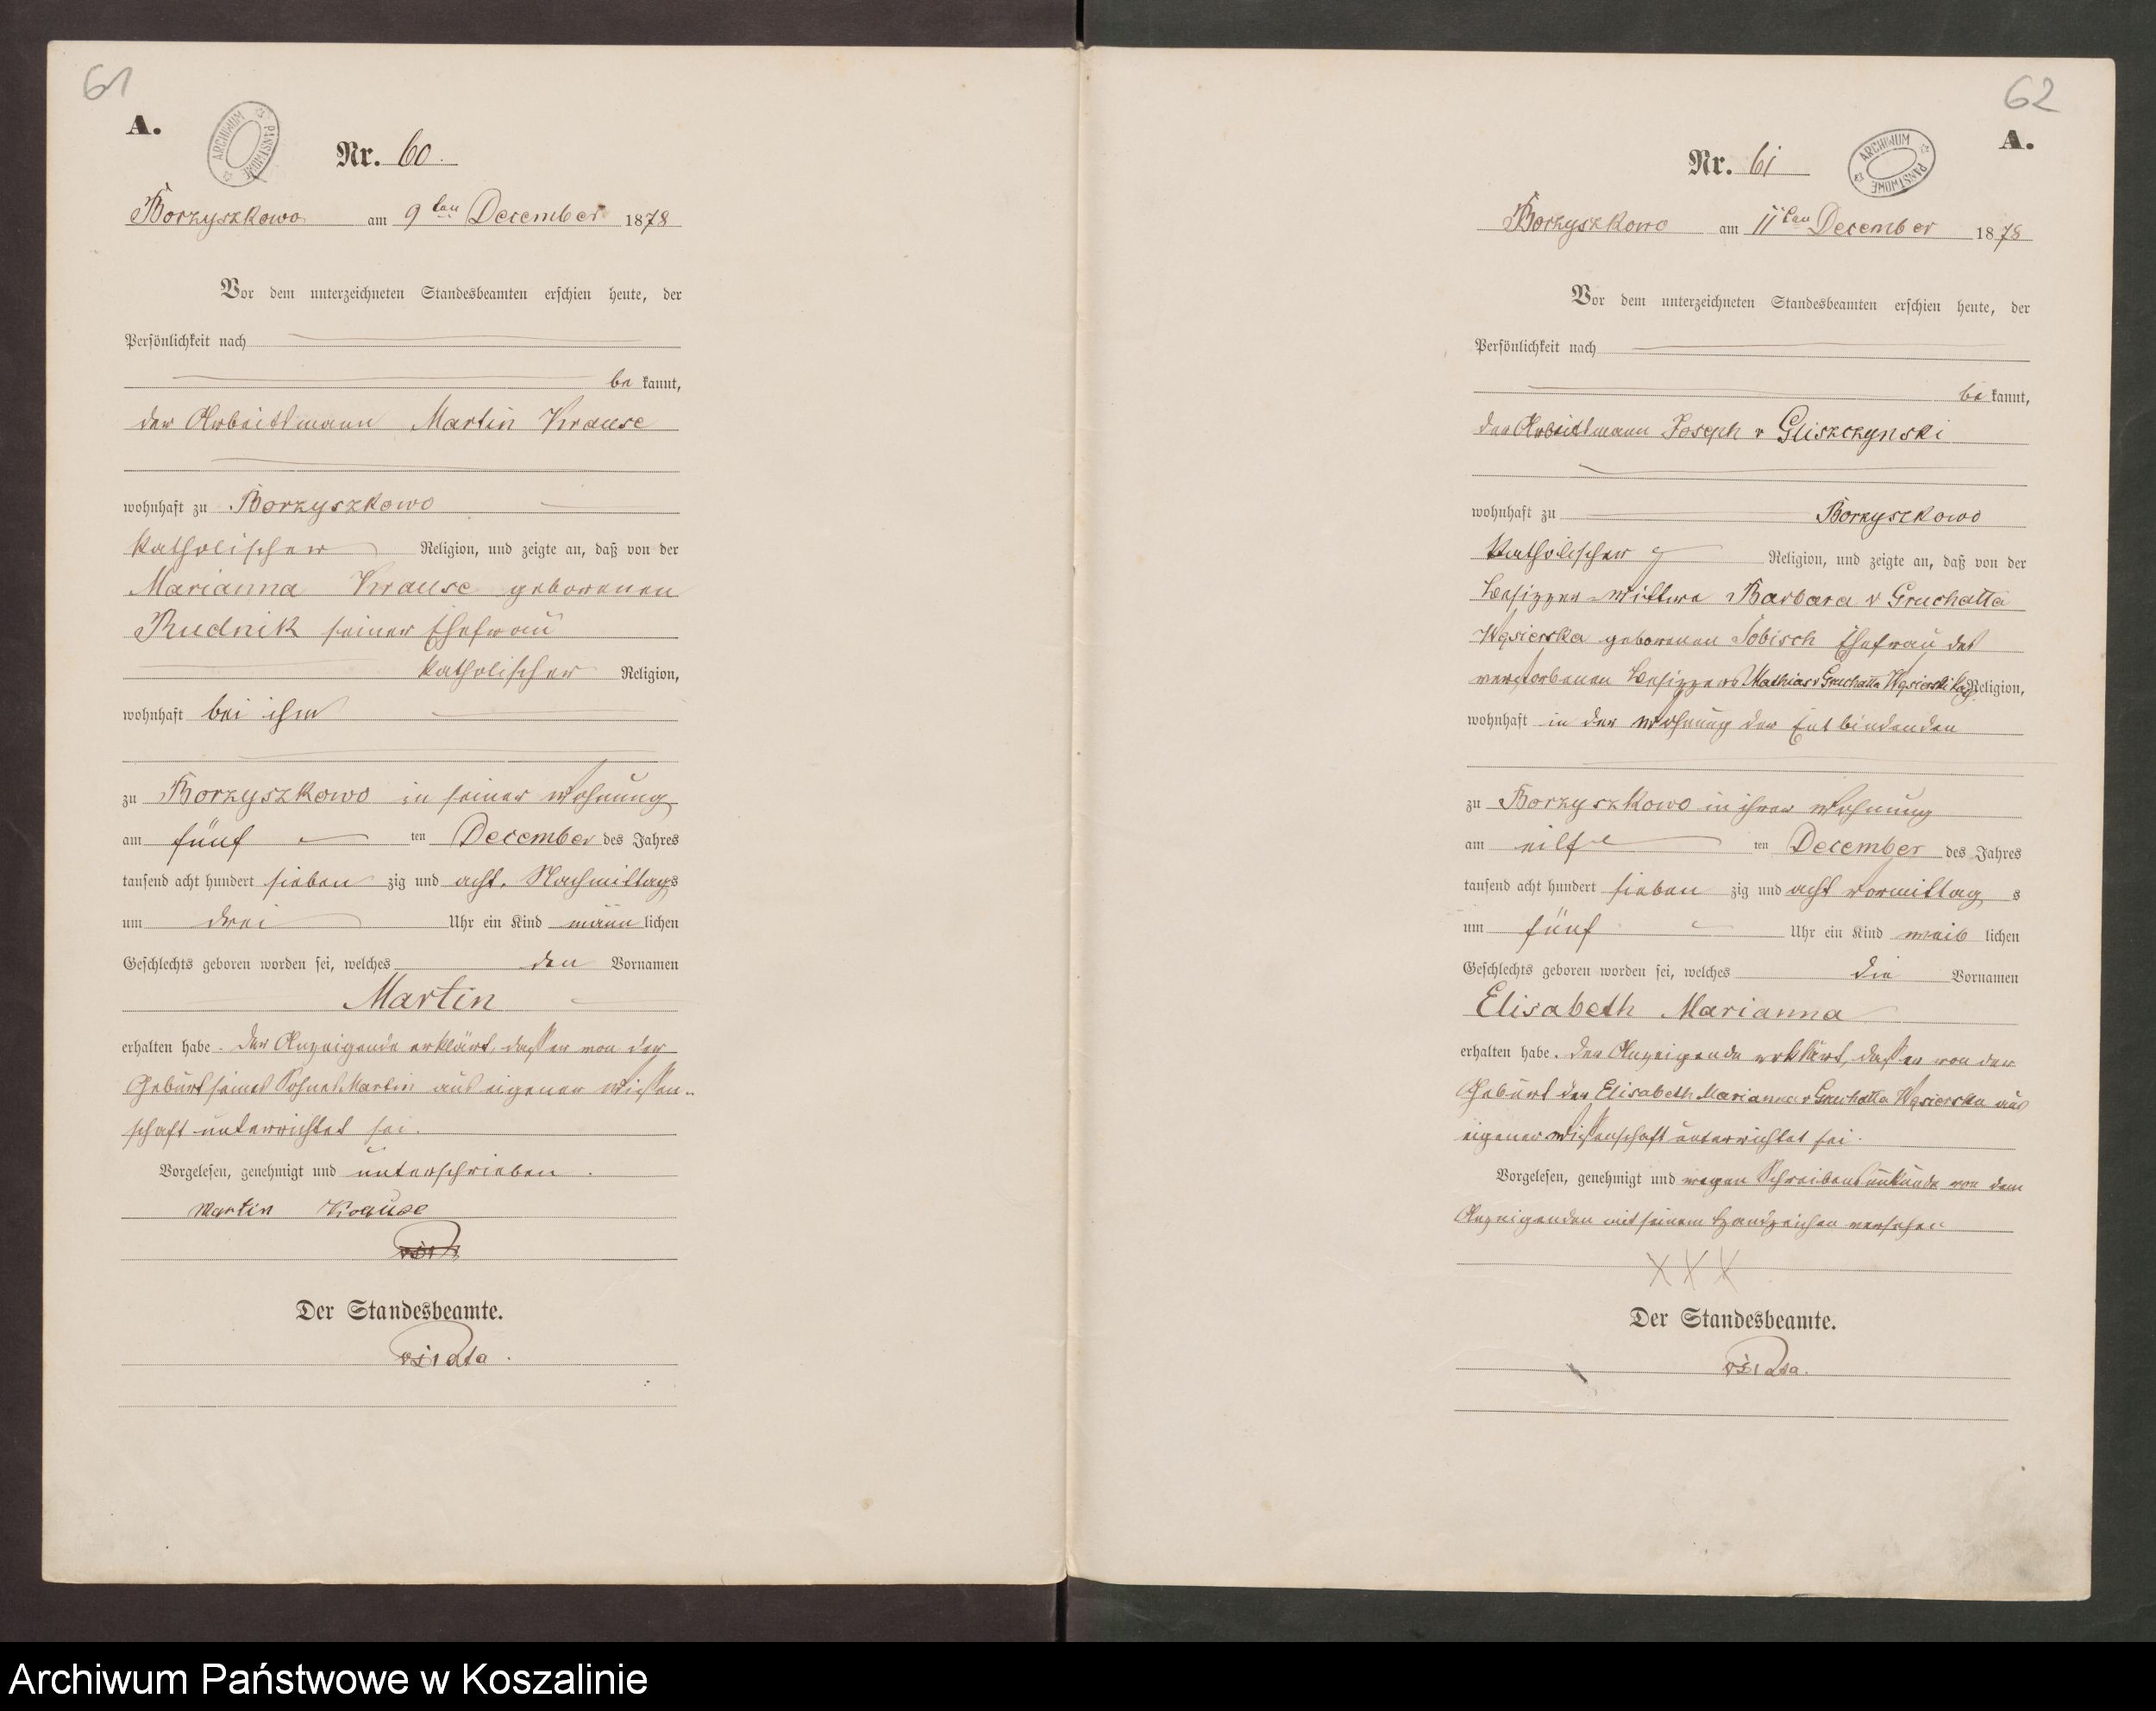 61
A.
ARCHIWUM PAŃSTWOWE
Nr. 60.
Borzyszkowo am 9ten December 1878
Vor dem unterzeichneten Standesbeamten erschien heute, der
Persönlichkeit nach
be kannt,
der Arbeitsmann Martin Krause
wohnhaft zu Borzyszkowo
katholischer Religion, und zeigte an, daß von der
Marianna Krause geborenen
Rudnik seiner Ehefrau
katholischer Religion,
wohnhaft bei ihm
zu Borzyszkowo in seiner Wohnung
am fünf ten December des Jahres
tausend acht hundert sieben zig und acht, Nachmittags
um drei Uhr ein Kind männ lichen
Geschlechts geboren worden sei, welches den Vornamen
Martin
erhalten habe. Der Anzeigende erklärt, dass er von der
Geburt seines Sohnes Martin aus eigener Wissen-
schaft unterrichtet sei.
Vorgelesen, genehmigt und unterschrieben.
Martin Krause
Der Standesbeamte.
62
A.
ARCHIWUM PAŃSTWOWE
Nr. 61
Borzyszkowo am 11ten December 1878
Vor dem unterzeichneten Standesbeamten erschien heute, der
Persönlichkeit nach
be kannt,
der Arbeitsmann Joseph v Gliszczynski
wohnhaft zu Borzyszkowo
katholischer Religion, und zeigte an, daß von der
Besitzer-Wittwe Barbara v Gruchalla
Węsierska geborenen Sobisch Ehefrau des
verstorbenen Besitzers Mathias v Gruchalla Węsierski kag. Religion,
wohnhaft in der Wohnung der Entbindenden
zu Borzyszkowo in ihrer Wohnung
am eilf ten December des Jahres
tausend acht hundert sieben zig und acht Vormittag s
um fünf Uhr ein Kind weib lichen
Geschlechts geboren worden sei, welches die Vornamen
Elisabeth Marianna
erhalten habe. Der Anzeigende erklärt, dass er von der
Geburt der Elisabeth Marianna v Gruchalla Węsierska aus
eigener Wissenschaft unterrichtet sei.
Vorgelesen, genehmigt und wegen Schreibensunkunde von dem
Anzeigenden mit seinem Handzeichen versehen
XXX
Der Standesbeamte.
Archiwum Państwowe w Koszalinie